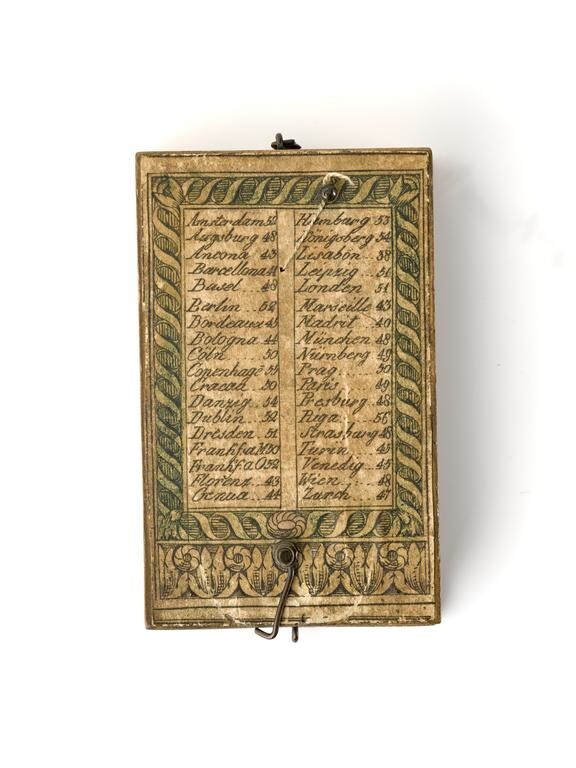 Amsterdam 52
Augsburg 48
Ancona 43
Barcellona 41
Basel 48
Berlin .. 52
Bordeaux 45
Bologna 44
Cöln .... 50
Copenhagē
Cracau .. 50
Danzig .. 54
Dublin .. 52
Dresden .. 51
Frankf a M 50
Frankf a O 52
Florenz .. 43
Genua .. 44
Hamburg 53
Königsberg 54
Lisabon .. 38
Leipzig .. 51
London .. 51
Marseille 43
Madrit .. 40
München 48
Nurnberg 49
Prag .... 50
Paris .... 49
Presburg 48
Riga .... 56
Strasburg 48
Turin ... 45
Venedig .. 45
Wien .... 48
Zurch ... 47